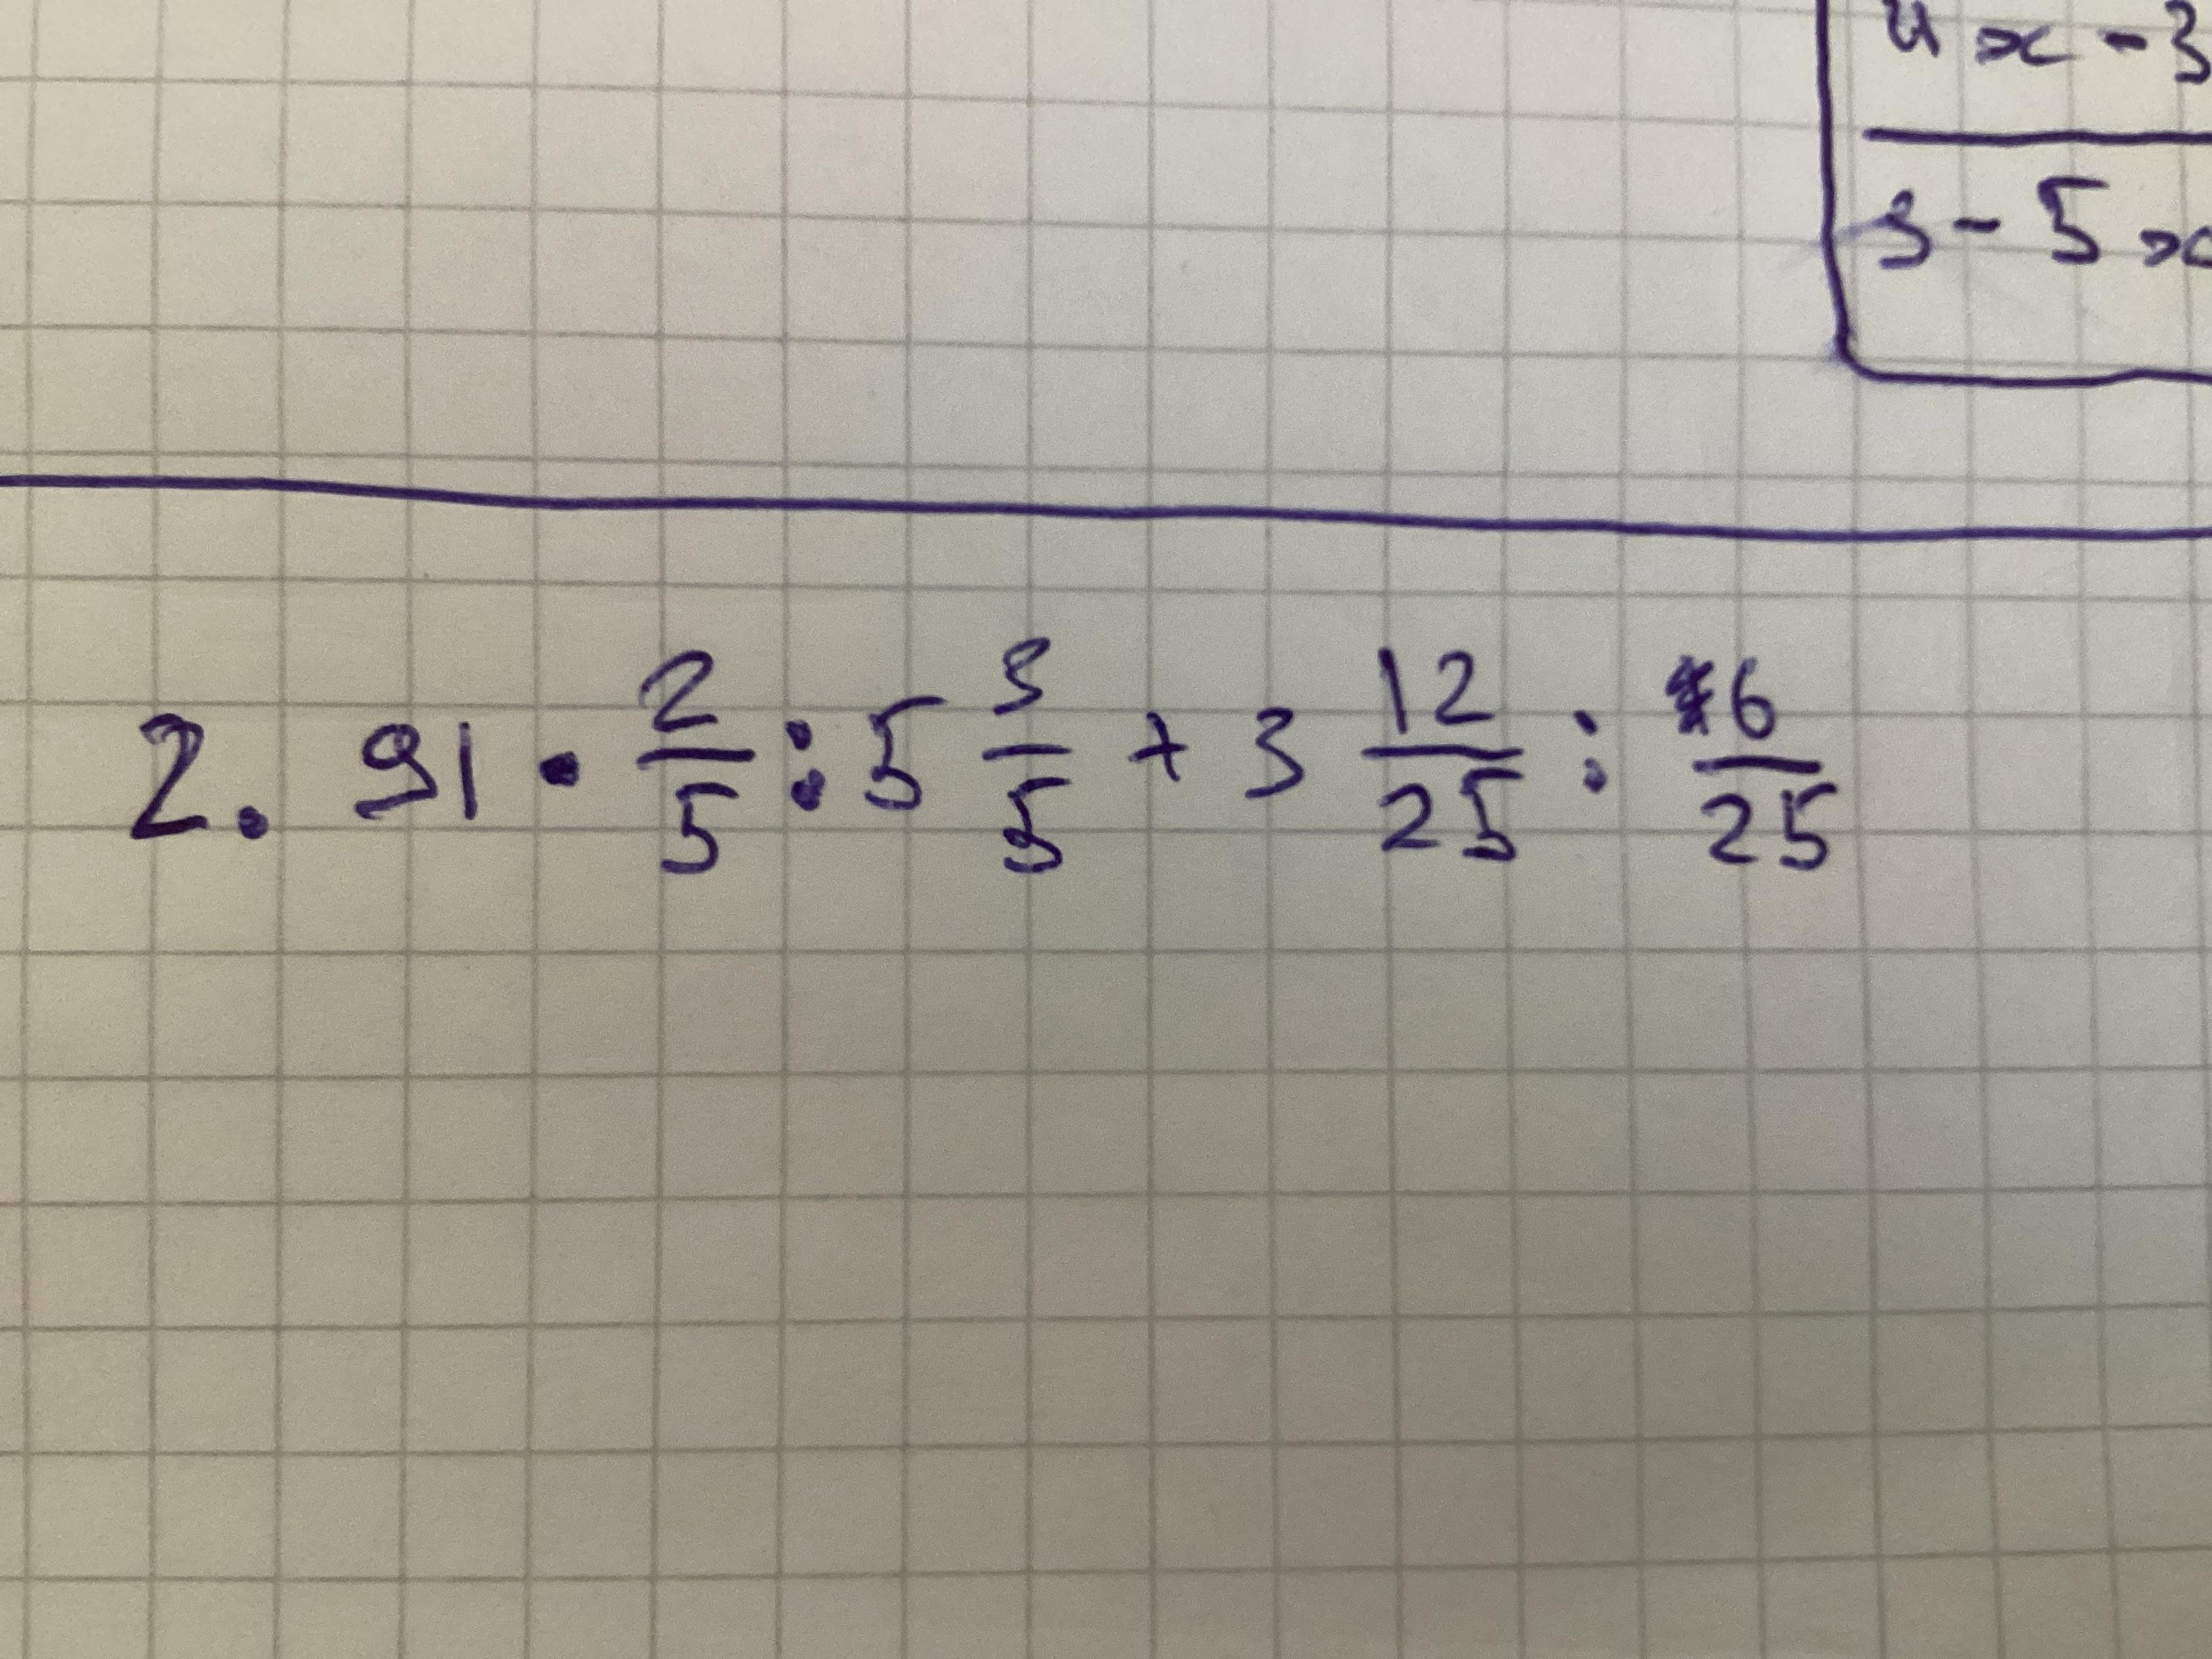 4x - 3
3 - 5x
2. 91 · 2/5 : 5 3/5 + 3 12/25 : 6/25